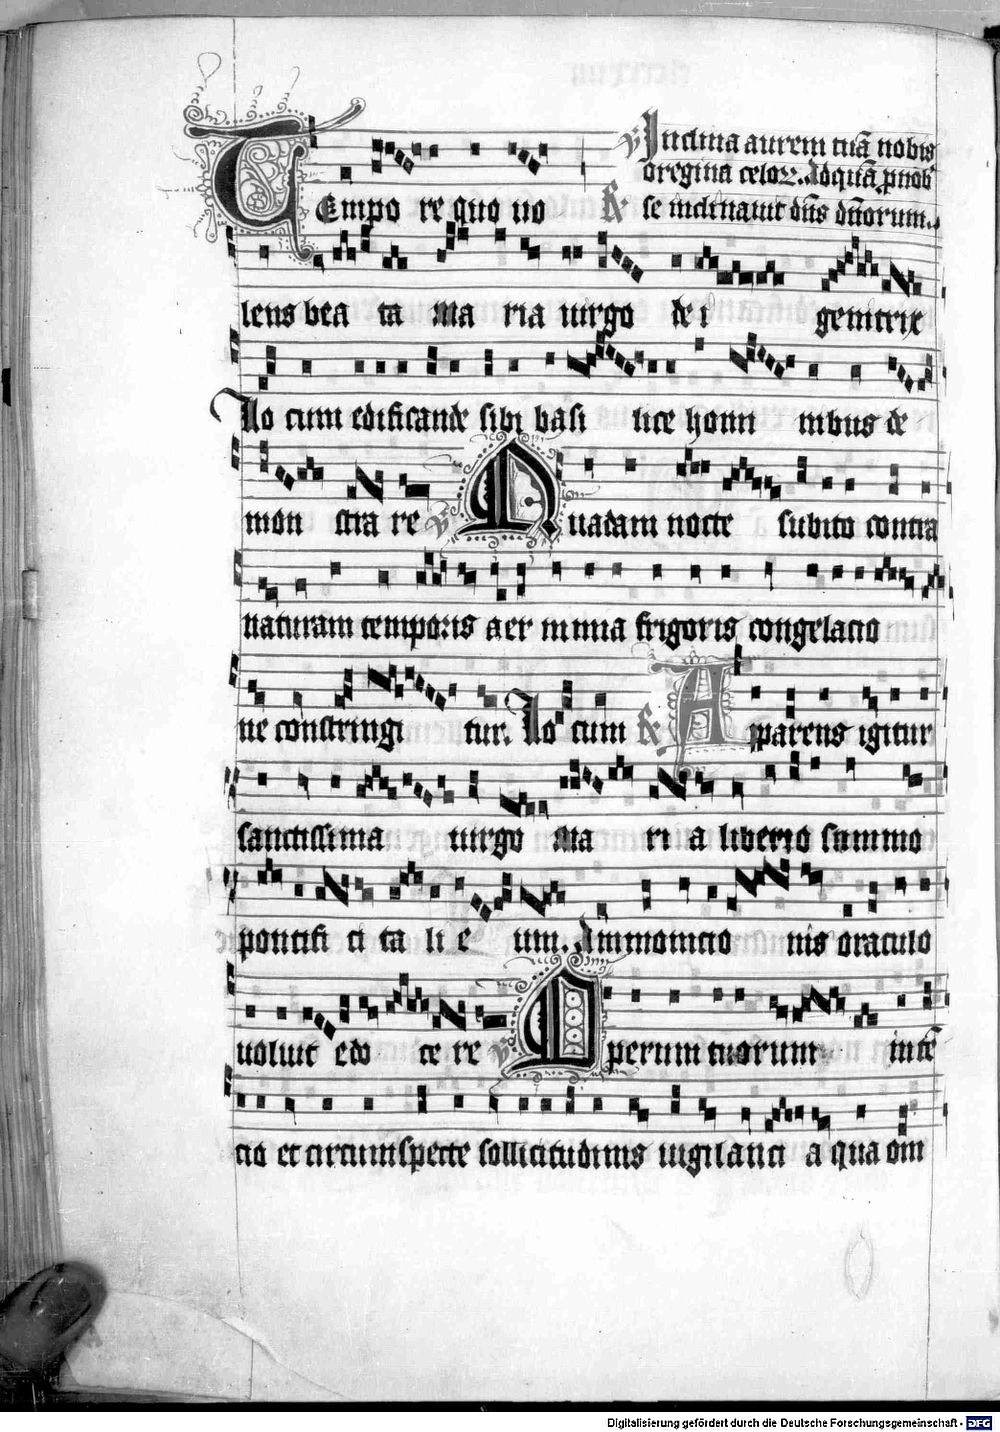 ℣ Inclina aurem tuā nobis
o regina celoꝝ. Ad quā ꝓ nob
Tempo re quo uo ℟ se inclinauit dn̄s dn̄orum.
lens bea ta ma ria uirgo de i genitrix
Lo cum edificande sibi basi lice homi nibus de
mon stra re ℣ Quadam nocte subito contra
naturam temporis aer nimia frigoris congelacio
ne constringi tur. Lo cum ℟ Aparens igitur
sanctissima uirgo ma ri a liberio summo
pontifi ci ta li e um. Ammonicio nis oraculo
uoluit edo ce re ℣ Operum tuorum inte
cio et circumspecte sollicitudinis uigilanci a qua om̄
Digitalisierung gefördert durch die Deutsche Forschungsgemeinschaft - DFG